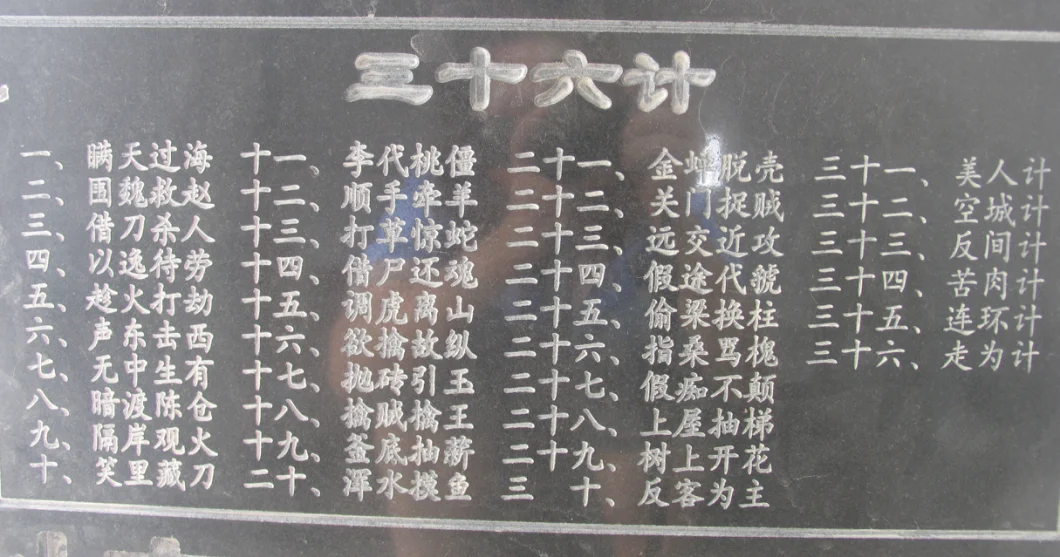 三十六计
一、瞒天过海
二、围魏救赵
三、借刀杀人
四、以逸待劳
五、趁火打劫
六、声东击西
七、无中生有
八、暗渡陈仓
九、隔岸观火
十、笑里藏刀
十一、李代桃僵
十二、顺手牵羊
十三、打草惊蛇
十四、借尸还魂
十五、调虎离山
十六、欲擒故纵
十七、抛砖引玉
十八、擒贼擒王
十九、釜底抽薪
二十、浑水摸鱼
二十一、金蝉脱壳
二十二、关门捉贼
二十三、远交近攻
二十四、假途代虢
二十五、偷梁换枉
二十六、指桑骂槐
二十七、假痴不颠
二十八、上屋抽梯
二十九、树上开花
三十、反客为主
三十一、美人计
三十二、空城计
三十三、反间计
三十四、苦肉计
三十五、连环计
三十六、走为计